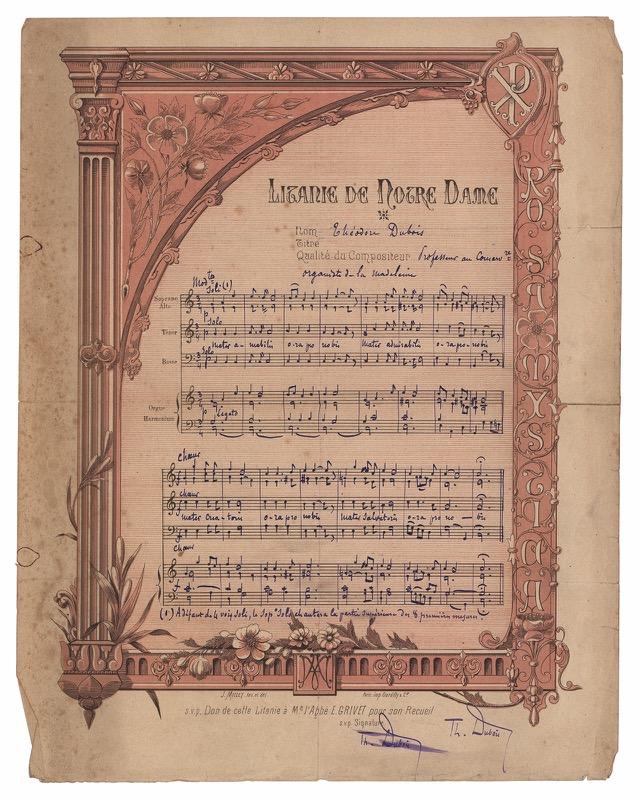 LITANIE DE NOTRE DAME
Nom Théodore Dubois
Titre
Qualité du Compositeur Professeur au Conserv.re
organiste de la Madeleine
ROSA MYSTICA
Mod.to
Soli (1)
Soprano
Alto
Solo
Tenor
Mater amabilis o-ra pro nobis Mater admirabilis o-ra pro nobis
Solo
Basse
Orgue
Harmonium
p Legato
chœur
chœur
Mater Crea-toris o-ra pro nobis Mater Salvatoris o-ra pro no-bis
chœur
f
(1) A défaut de 4 voix soli, le Sop. Solo chantera la partie supérieure des 8 premières mesures.
J. MILLET, inv. et del.
s.v.p. Don de cette Litanie à Mr. l'Abbé E. GRIVET pour son Recueil
s.v.p. Signature
Th. Dubois
Th. Dubois